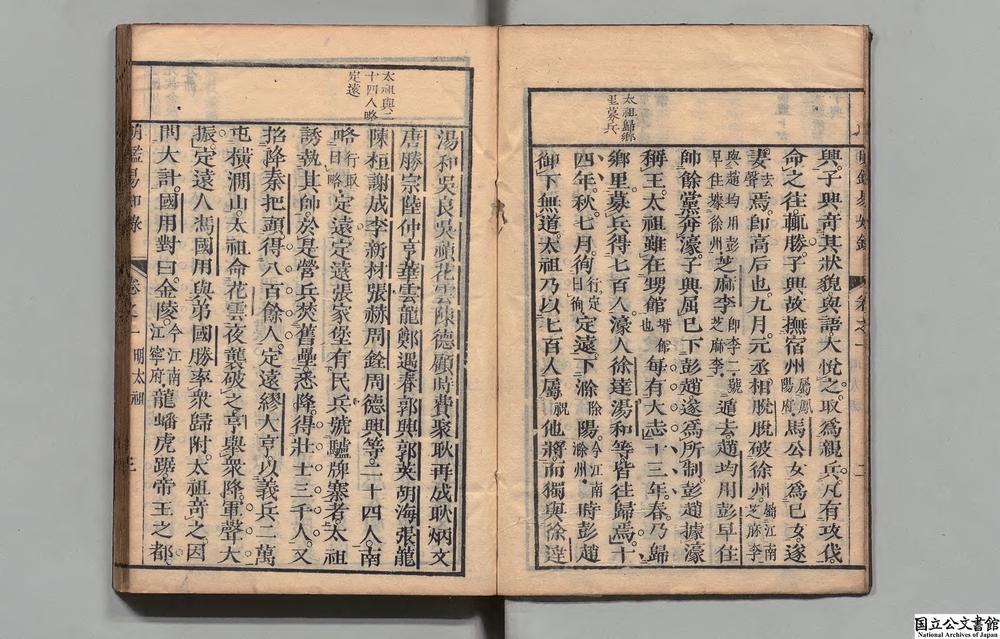 太祖歸鄉
里募兵
興。子興奇其狀貌與語大悅之。取爲親兵。凡有攻伐。
命之往輒勝。子興故撫宿州屬鳳陽府馬公女爲已女。遂
妻去聲焉。卽高后也。九月。元丞相脫脫破徐州。屬江南芝麻李
與趙均用彭早住據徐州芝麻李卽李二號芝麻李。遁去。趙均用彭早住
帥餘黨奔濠。子興屈已下彭趙。遂爲所制。彭趙據濠
稱王。太祖雖在甥館壻館也每有大志。十三年。春。乃歸
鄉里募兵。得七百人。濠人徐達湯和等皆往歸焉。十
四年。秋。七月。徇行定曰徇定遠。下滁除陽。今江南滁州。時彭趙
御下無道。太祖乃以七百人屬祝他將。而獨與徐達
太祖與二
十四人略
定遠
湯和吳良吳禎花雲陳德顧時費聚耿再成耿炳文
唐勝宗陸仲亨華雲龍鄭遇春郭興郭英胡海張龍
陳桓謝成李新材張赫周銓周德興等。二十四人。南
略行取曰略。定遠。定遠張家堡有民兵號驢牌寨者。太祖
誘執其帥。於是營兵焚舊壘。悉降。得壯士三千人。又
招降秦把頭。得八百餘人。定遠繆大亨。以義兵二萬
屯橫澗山。太祖命花雲夜襲破之。亨擧衆降。軍聲大
振。定遠人馮國用與弟國勝率衆歸附。太祖奇之。因
問大計。國用對曰。金陵今江南江寧府龍蟠虎踞。帝王之都。
卷之一 明太祖
三
国立公文書館
National Archives of Japan